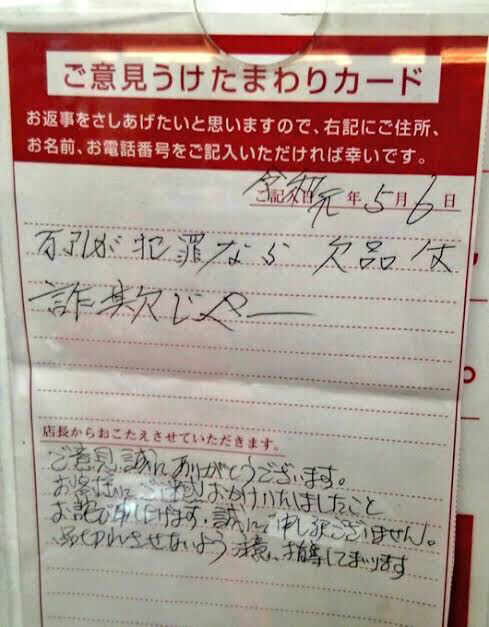 ご意見うけたまわりカード
お返事をさしあげたいと思いますので、右記にご住所、
お名前、お電話番号をご記入いただければ幸いです。
ご記入日 令和元年5月6日
万引が犯罪なら 欠品は
詐欺じゃー
店長からおこたえさせていただきます。
ご意見誠にありがとうございます。
お客様にご迷惑おかけいたしましたこと
お詫び申し上げます。誠に申し訳ございません。
品切れさせないよう 指導してまいります